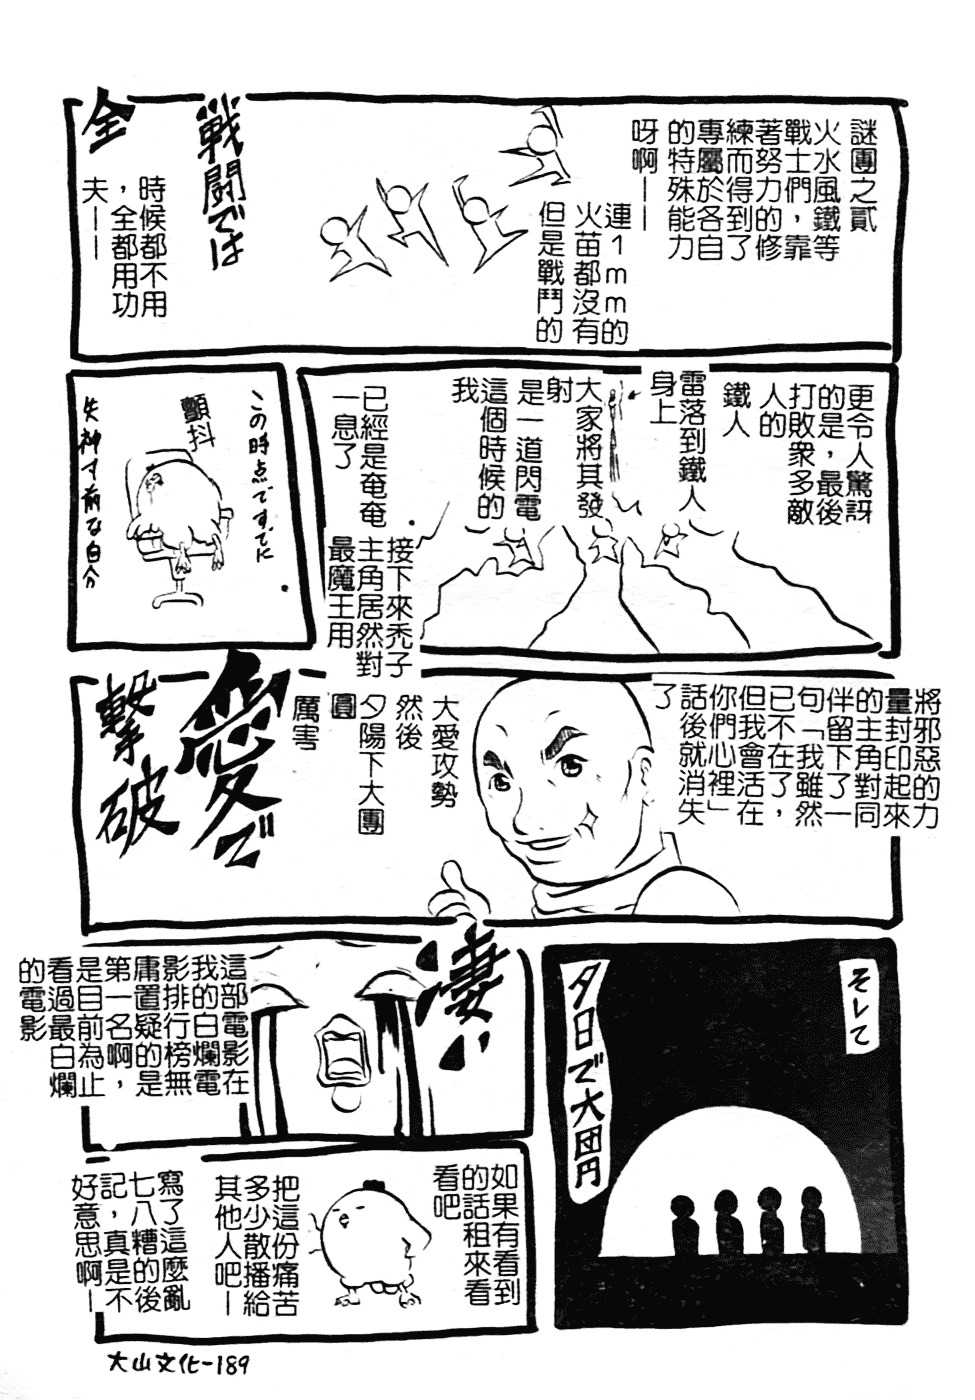 謎團之貳
火水風鐵等
戰士們，靠
著努力的修
練而得到了
專屬於各自
的特殊能力
呀啊——
連1mm的
火苗都沒有
但是戰鬥的
戦闘では
全
時候都不用
，全都用功
夫——
更令人驚訝
的是，最後
打敗眾多敵
人的
鐵人
雷落到鐵人
身上
大家將其發
射
是一道閃電
這個時候的
我
已經是奄奄
一息了
この時点ですでに
顫抖
失神寸前な自分
接下來禿子
主角居然對
最魔王用
將邪惡的力
量封印起來
的主角對同
伴留下了一
句「我雖然
已不在了，
但我會活在
你們心裡」
話後就消失
了
大愛攻勢
然後
夕陽下大團
圓
厲害
愛で
撃破
そして
夕日で大団円
凄い
這部電影在
我的白爛電
影排行榜無
庸置疑的是
第一名啊，
是目前為止
看過最白爛
的電影
如果有看到
的話租來看
看吧
把這份痛苦
多少散播給
其他人吧—
寫了這麼亂
七八糟的後
記，真是不
好意思啊—
大山文化-189